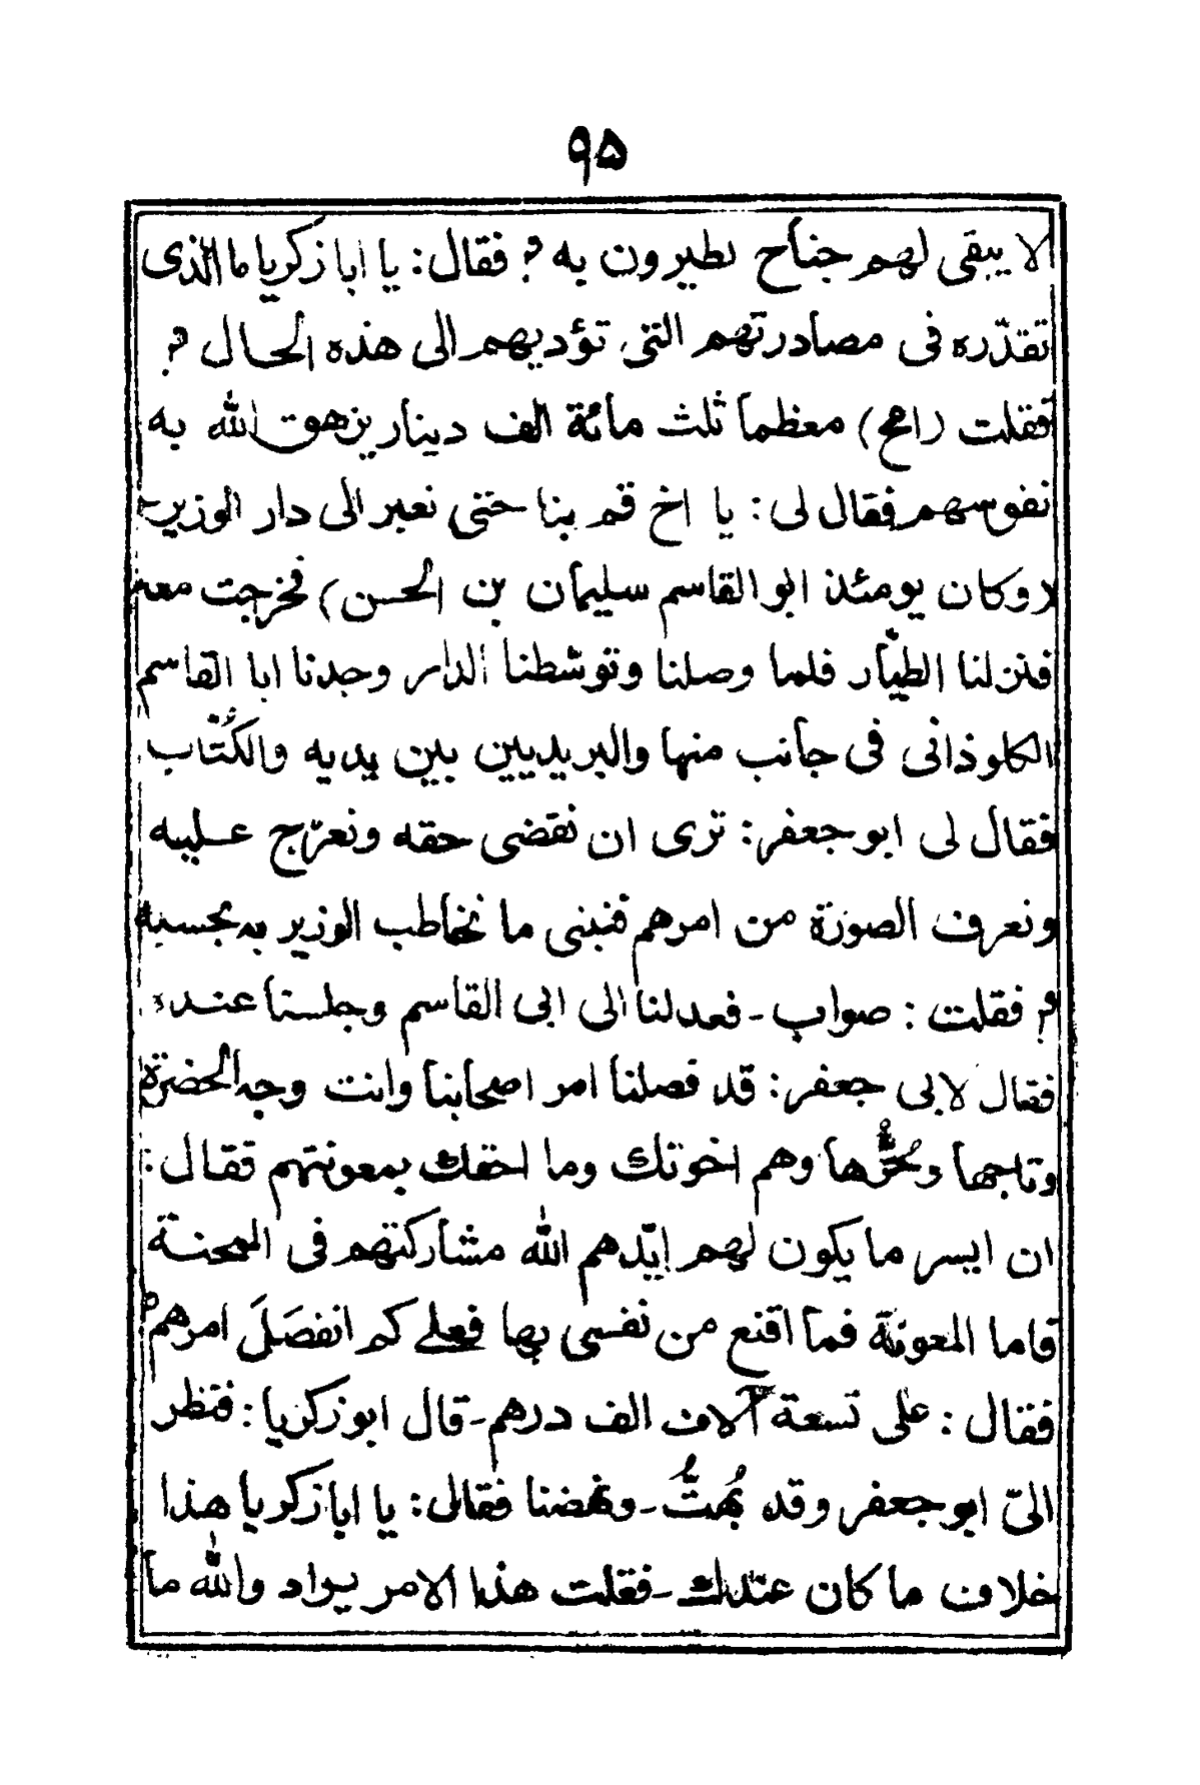 ٩٥
لا يبقى لهم جناح يطيرون به ? فقال : يا ابا زكريا ما الذى
تقدّره فى مصادرتهم التى تؤديهم الى هذه الحال ?
فقلت (رامح) معظما ثلث مائة الف دينار يزهق الله به
نفوسهم فقال لى : يا اخ قم بنا حتى نعبر الى دار الوزير -
(وكان يومئذ ابو القاسم سليمان بن الحسن) فخرجت معه
فنزلنا الطيّار فلما وصلنا وتوسّطنا الدار وجدنا ابا القاسم
الكلوذانى فى جانب منها والبريديين بين يديه والكُتّاب
فقال لى ابو جعفر : ترى ان نقضى حقه ونعرّج عليه
ونعرف الصورة من امرهم فنبنى ما نخاطب الوزير به بحسبه
? فقلت : صواب - فعدلنا الى ابى القاسم وجلسنا عنده
فقال لابى جعفر : قد فصلنا امر اصحابنا وانت وجه الحضرة
وتاجها وهم اخوتك وما احقك بمعونتهم فقال :
ان ايسر ما يكون لهم ايّدهم الله مشاركتهم فى المحنة
فاما المعونة فما اقنع من نفسى بها فعلى كم انفصَلَ امرهم ?
فقال : على تسعة آلاف الف درهم - قال ابو زكريا : فنظر
الىّ ابو جعفر وقد بُهتُّ - ونهضنا فقال : يا ابا زكريا هذا
خلاف ما كان عندك - فقلت هذا الامر يراد والله ما